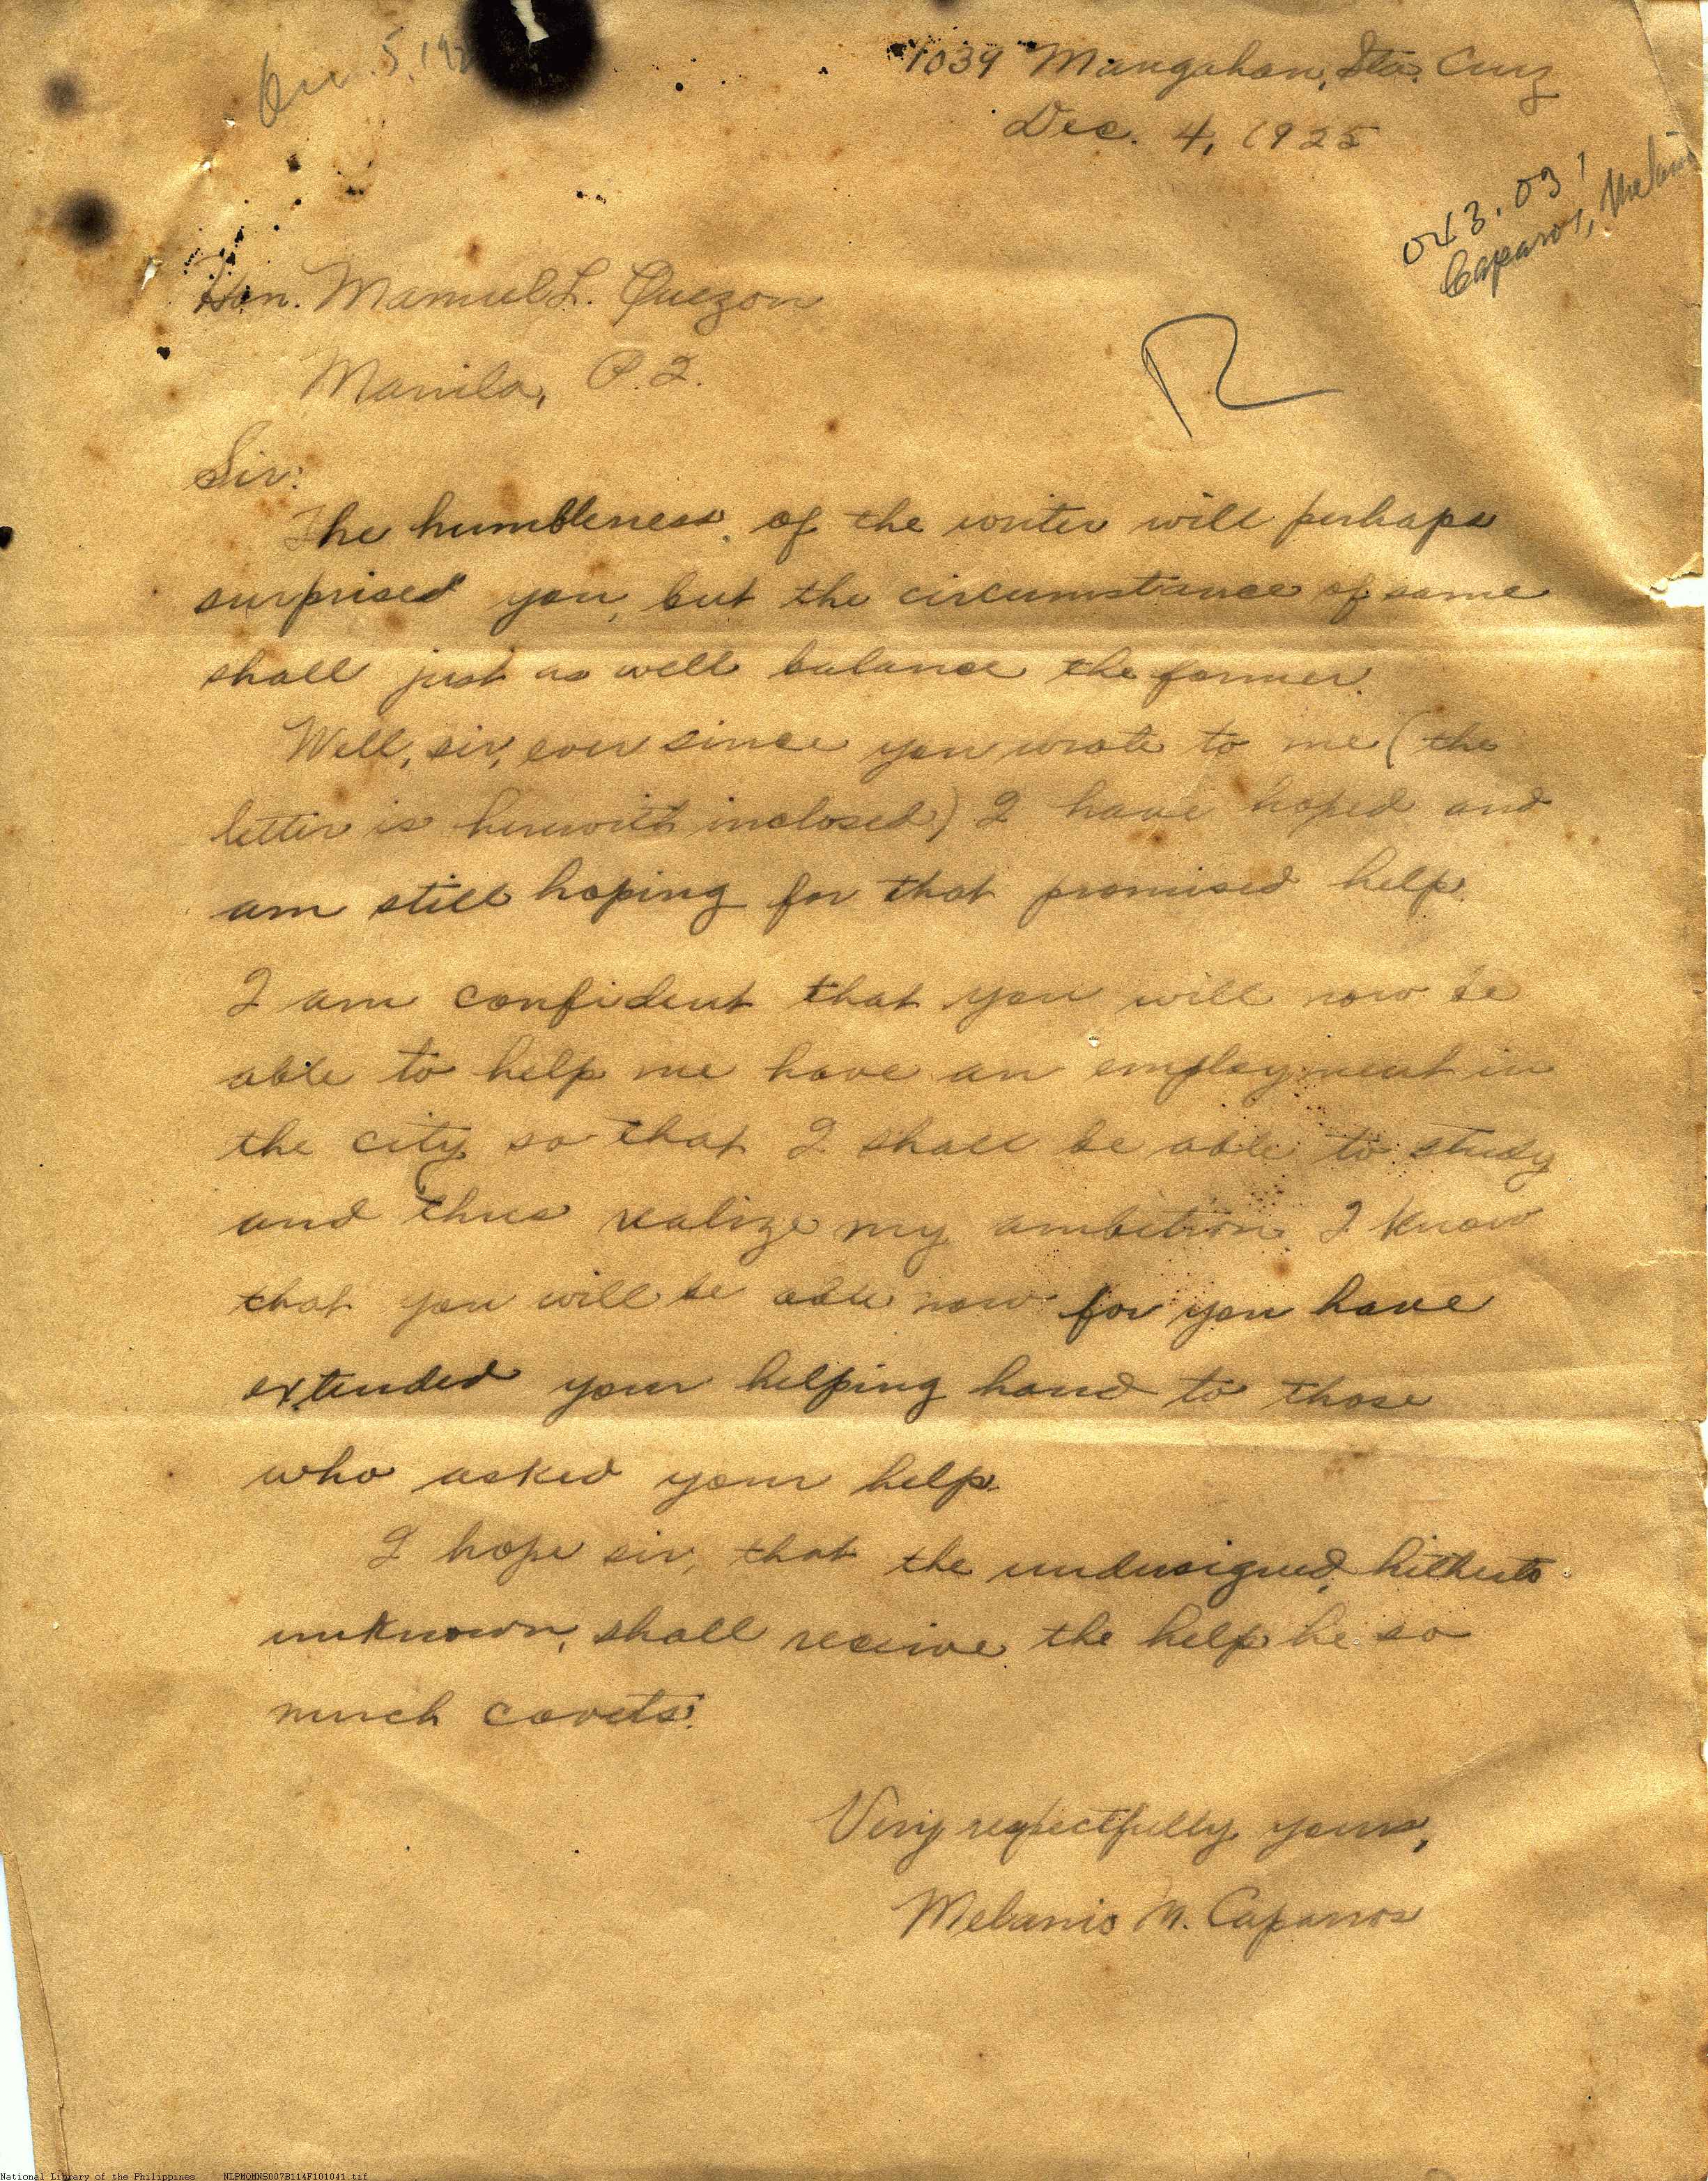 Dec. 5, 192
1039 Mangahan, Sta. Cruz
Dec. 4, 1925
043.03
Caparros, Melanio
Hon. Manuel L. Quezon
Manila, P.I.
R
Sir:
The humbleness of the writer will perhaps
surprised you, but the circumstance of same
shall just as well balance the former.
Well, sir, ever since you wrote to me (the
letter is herewith inclosed) I have hoped and
am still hoping for that promised help.
I am confident that you will now be
able to help me have an employment in
the city so that I shall be able to study
and thus realize my ambition. I know
that you will be able now for you have
extended your helping hand to those
who asked your help.
I hope sir, that the undersigned, hitherto
unknown, shall receive the help he so
much covets.
Very respectfully yours,
Melanio M. Caparros
National Library of the Philippines NLPMQMNS007B114F101041.tif